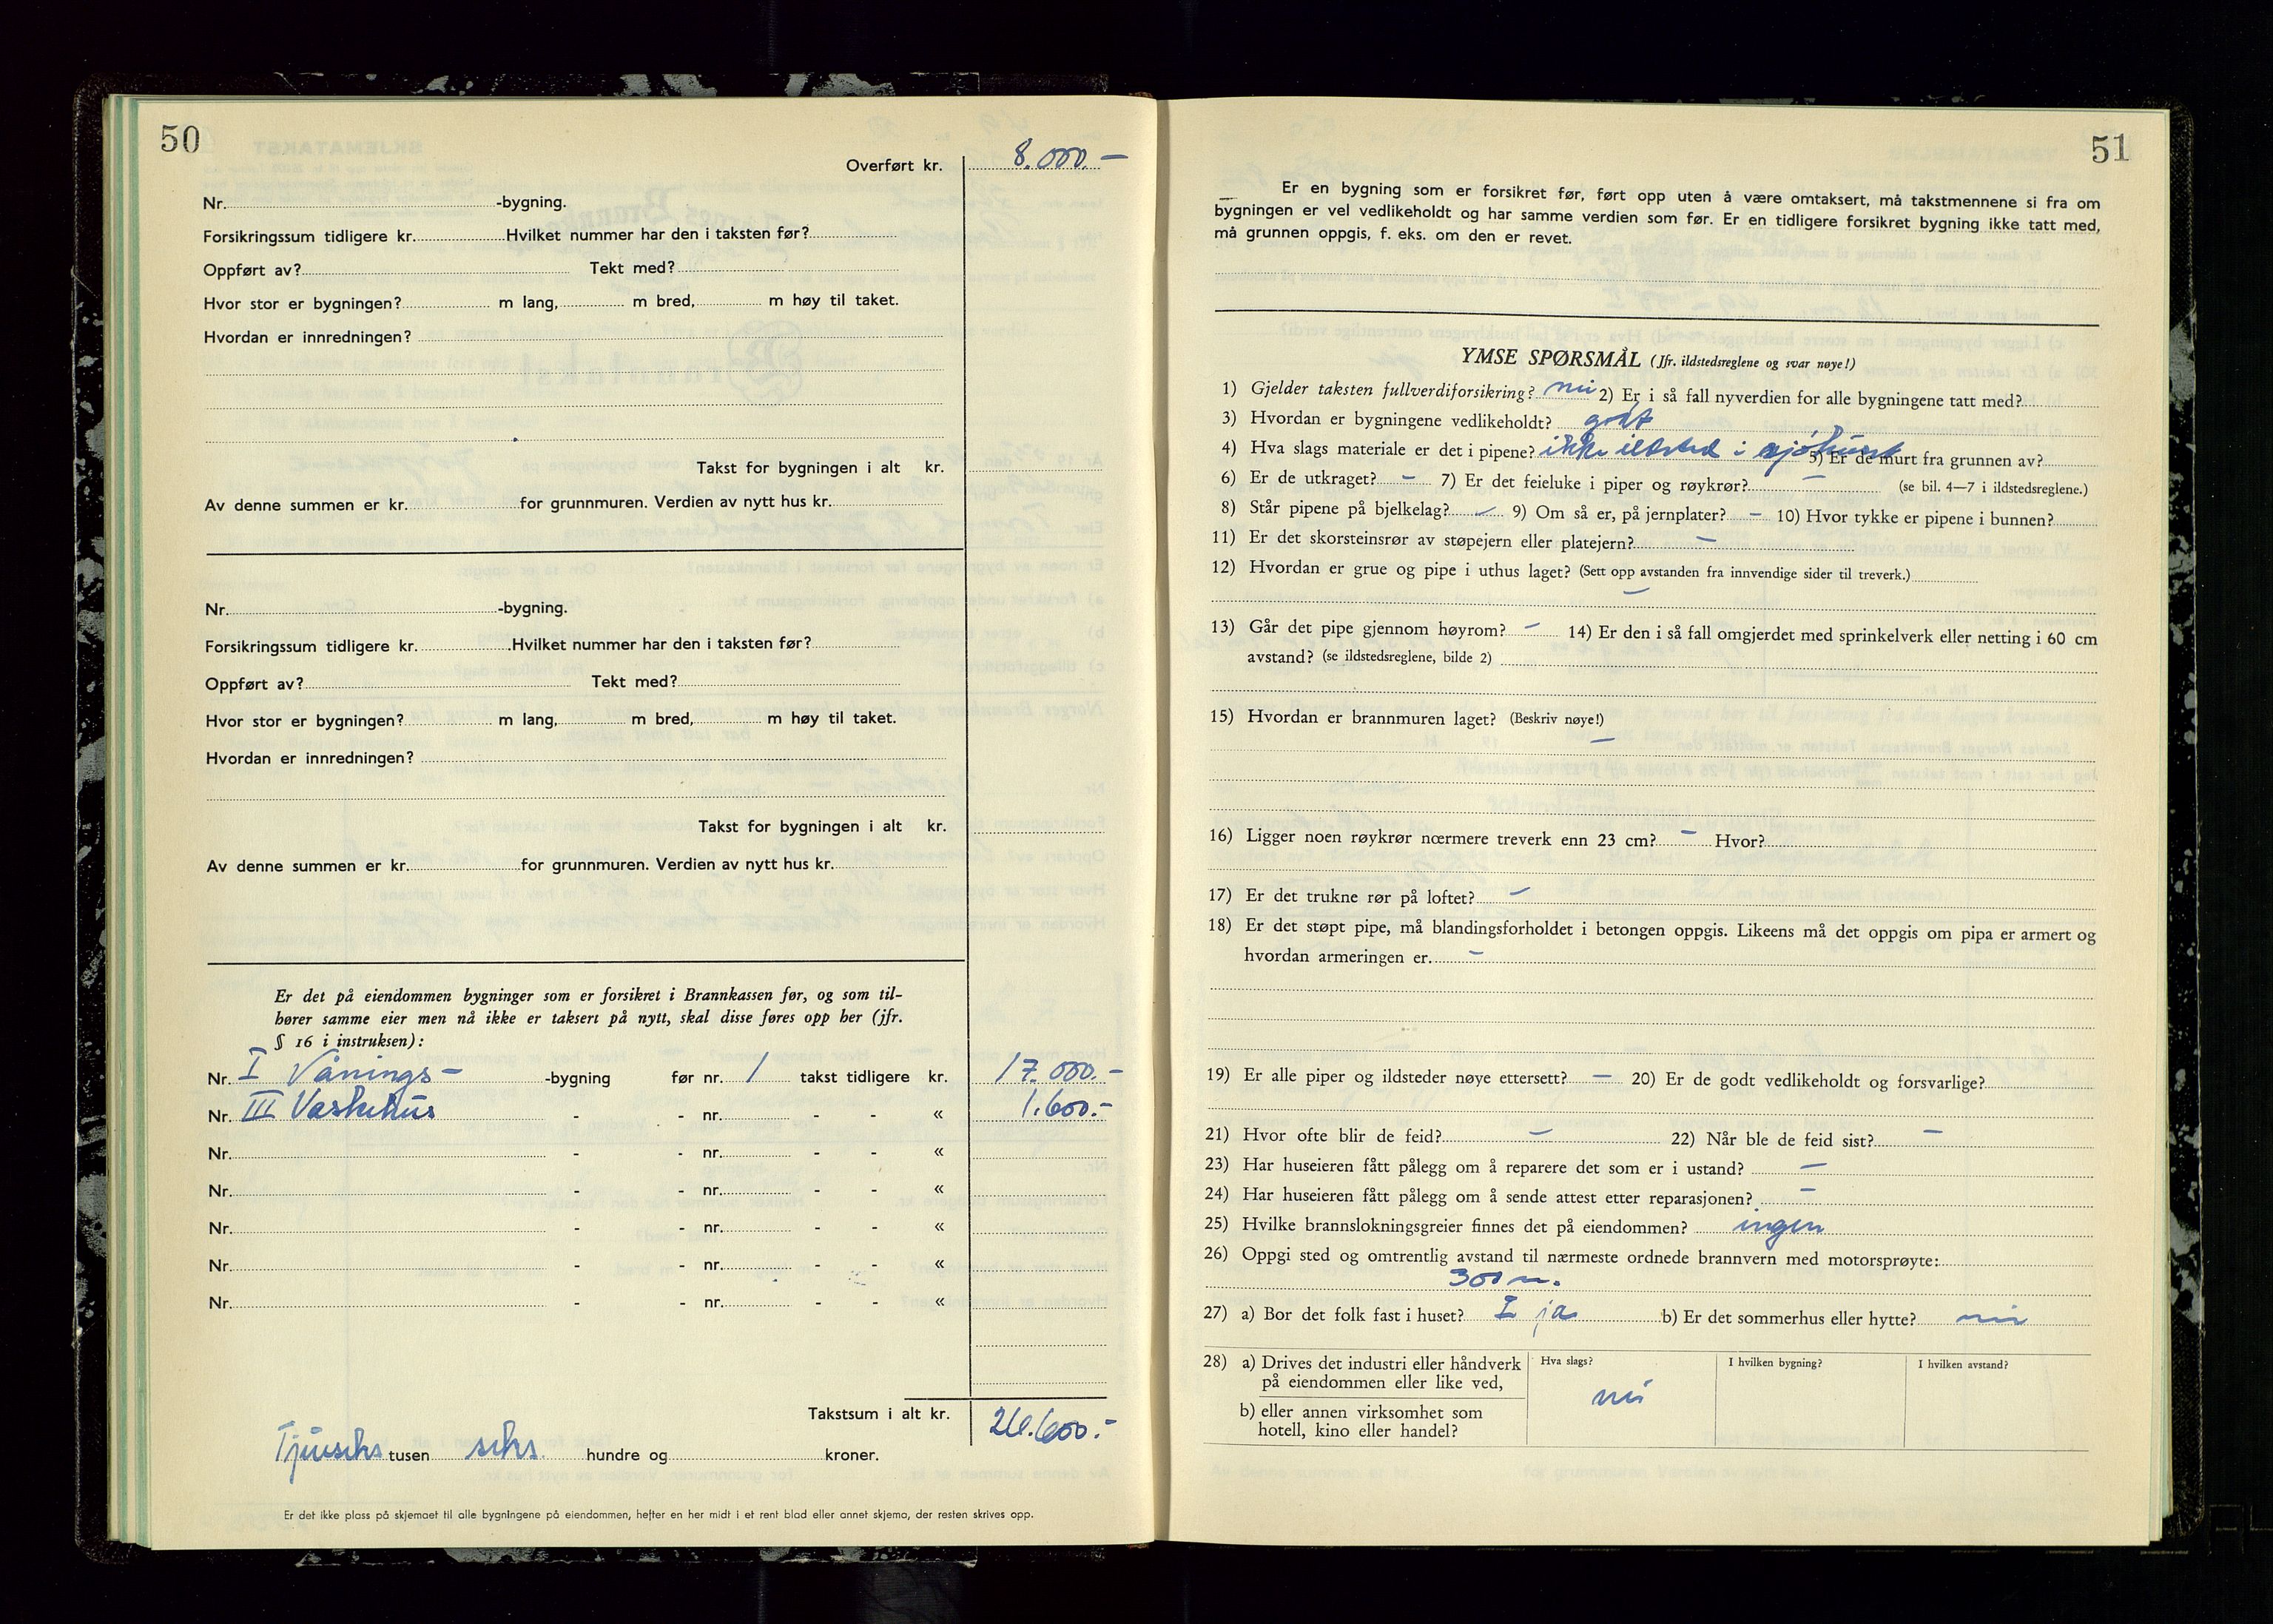 50
Overført kr. 8.000.–
Nr. -bygning.
Forsikringssum tidligere kr. Hvilket nummer har den i taksten før?
Oppført av? Tekt med?
Hvor stor er bygningen? m lang, m bred, m høy til taket.
Hvordan er innredningen?
Takst for bygningen i alt kr.
Av denne summen er kr. for grunnmuren. Verdien av nytt hus kr.
Nr. -bygning.
Forsikringssum tidligere kr. Hvilket nummer har den i taksten før?
Oppført av? Tekt med?
Hvor stor er bygningen? m lang, m bred, m høy til taket.
Hvordan er innredningen?
Takst for bygningen i alt kr.
Av denne summen er kr. for grunnmuren. Verdien av nytt hus kr.
Er det på eiendommen bygninger som er forsikret i Brannkassen før, og som til-
hører samme eier men nå ikke er taksert på nytt, skal disse føres opp her (jfr.
§ 16 i instruksen):
Nr. I Vånings- -bygning før nr. 1 takst tidligere kr. 17.000.–
Nr. III Vaskehus - - nr. - - « 1.600.–
Nr. - - nr. - - «
Nr. - - nr. - - «
Nr. - - nr. - - «
Nr. - - nr. - - «
Nr. - - nr. - - «
Takstsum i alt kr. 26.600.–
Tjueseks tusen seks hundre og kroner.
Er det ikke plass på skjemaet til alle bygningene på eiendommen, hefter en her midt i et rent blad eller annet skjema, der resten skrives opp.
51
Er en bygning som er forsikret før, ført opp uten å være omtaksert, må takstmennene si fra om
bygningen er vel vedlikeholdt og har samme verdien som før. Er en tidligere forsikret bygning ikke tatt med,
må grunnen oppgis, f. eks. om den er revet.
YMSE SPØRSMÅL (Jfr. ildstedsreglene og svar nøye!)
1) Gjelder taksten fullverdiforsikring? nei 2) Er i så fall nyverdien for alle bygningene tatt med?
3) Hvordan er bygningene vedlikeholdt? godt
4) Hva slags materiale er det i pipene? ikke ildsted i sjøhuset 5) Er de murt fra grunnen av?
6) Er de utkraget? – 7) Er det feieluke i piper og røykrør? – (se bil. 4—7 i ildstedsreglene.)
8) Står pipene på bjelkelag? – 9) Om så er, på jernplater? – 10) Hvor tykke er pipene i bunnen?
11) Er det skorsteinsrør av støpejern eller platejern? –
12) Hvordan er grue og pipe i uthus laget? (Sett opp avstanden fra innvendige sider til treverk.)
–
13) Går det pipe gjennom høyrom? – 14) Er den i så fall omgjerdet med sprinkelverk eller netting i 60 cm
avstand? (se ildstedsreglene, bilde 2)
15) Hvordan er brannmuren laget? (Beskriv nøye!)
–
16) Ligger noen røykrør nærmere treverk enn 23 cm? – Hvor?
17) Er det trukne rør på loftet? –
18) Er det støpt pipe, må blandingsforholdet i betongen oppgis. Likeens må det oppgis om pipa er armert og
hvordan armeringen er. –
19) Er alle piper og ildsteder nøye ettersett? – 20) Er de godt vedlikeholdt og forsvarlige?
21) Hvor ofte blir de feid? – 22) Når ble de feid sist? –
23) Har huseieren fått pålegg om å reparere det som er i ustand? –
24) Har huseieren fått pålegg om å sende attest etter reparasjonen? –
25) Hvilke brannslokningsgreier finnes det på eiendommen? ingen
26) Oppgi sted og omtrentlig avstand til nærmeste ordnede brannvern med motorsprøyte:
300 m.
27) a) Bor det folk fast i huset? I ja b) Er det sommerhus eller hytte? nei
28) a) Drives det industri eller håndverk Hva slags? I hvilken bygning? I hvilken avstand?
på eiendommen eller like ved,
nei
b) eller annen virksomhet som
hotell, kino eller handel?